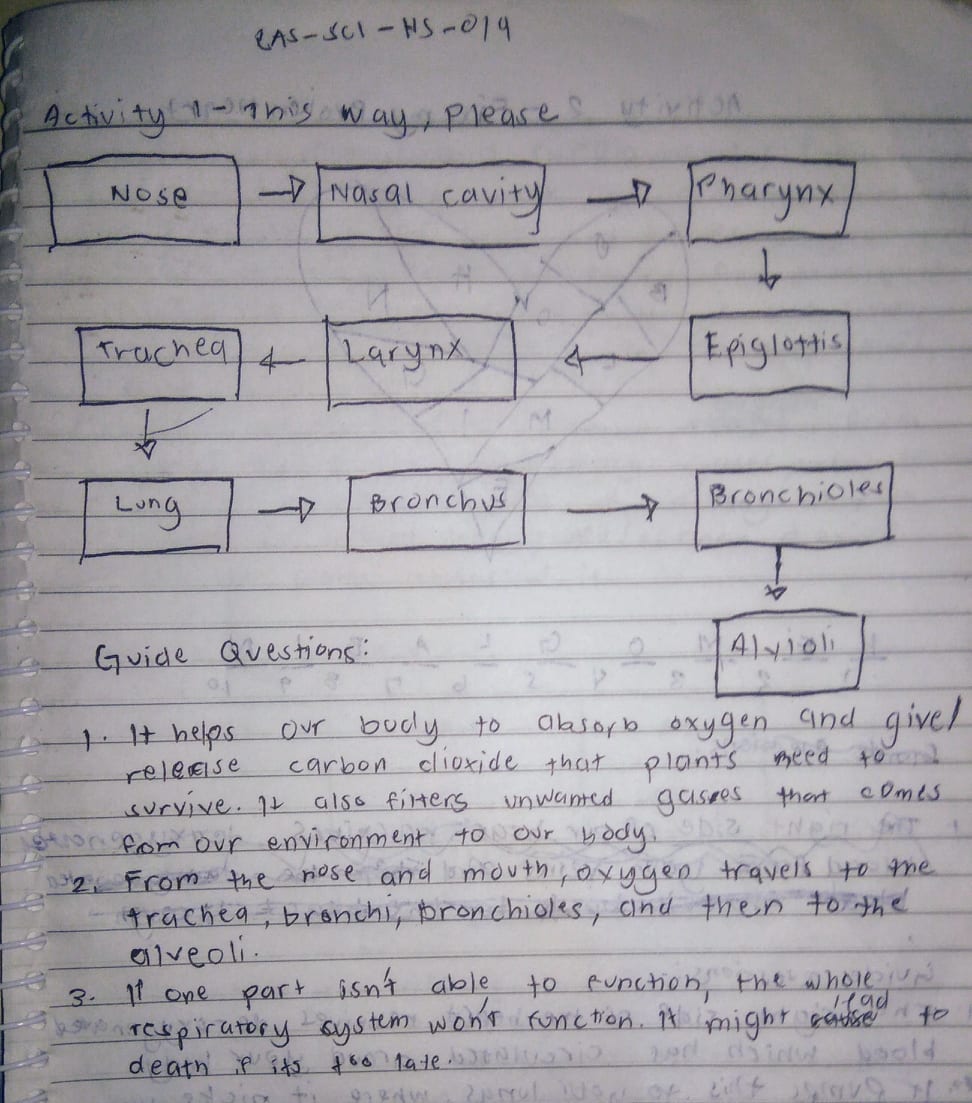 LAS-SCI-HS-019
Activity 1 - This way, please
Nose → Nasal cavity → Pharynx
↓
Trachea ← Larynx ← Epiglottis
↓
Lung → Bronchus → Bronchioles
↓
Guide Questions: Alvioli
1. It helps our body to absorb oxygen and give/
release carbon dioxide that plants need to
survive. It also filters unwanted gasses that comes
from our environment to our body.
2. From the nose and mouth, oxygen travels to the
trachea, bronchi, bronchioles, and then to the
alveoli.
3. If one part isn't able to function, the whole
respiratory system won't function. It might lead to
death if its too late.